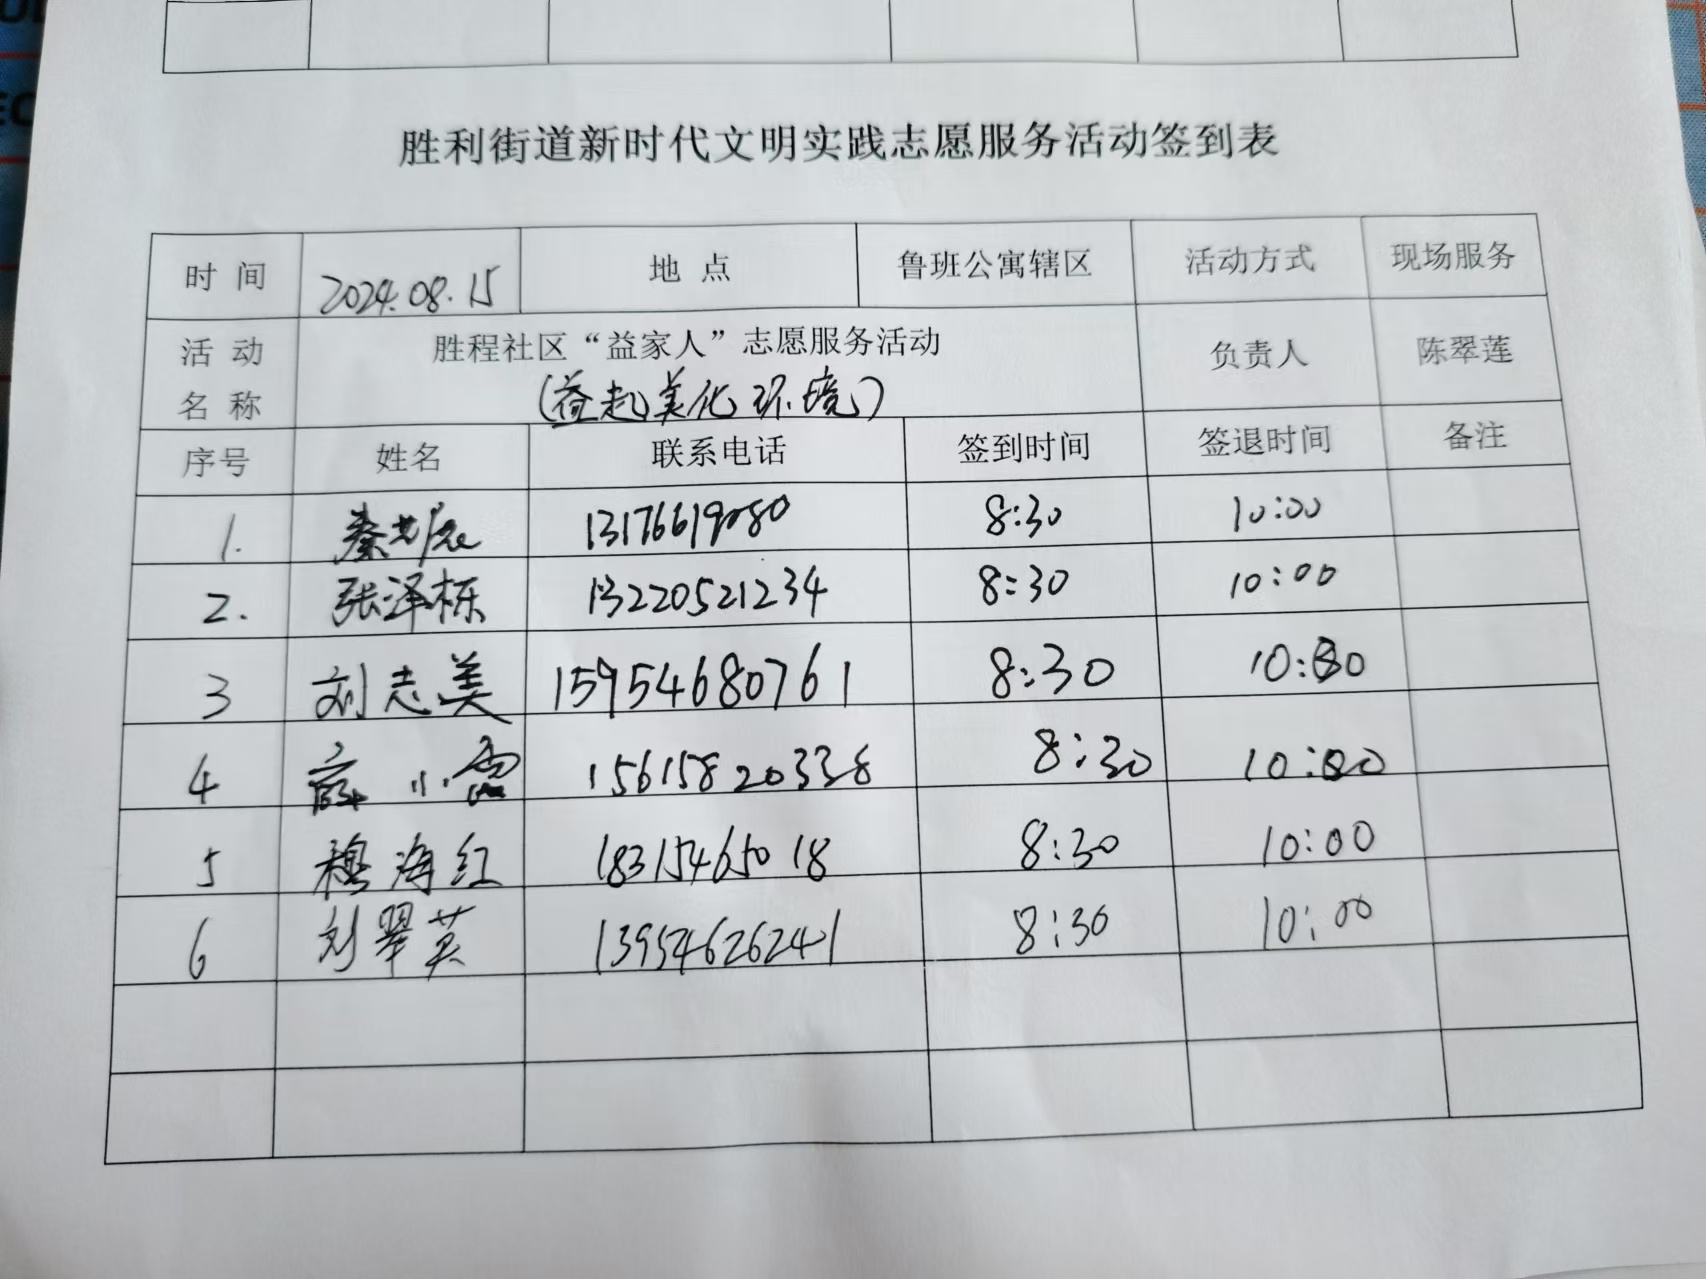 胜利街道新时代文明实践志愿服务活动签到表
时 间 2024.08.15 地 点 鲁班公寓辖区 活动方式 现场服务
活 动 名 称 胜程社区“益家人”志愿服务活动 负责人 陈翠莲
(益起美化环境)
序号 姓名 联系电话 签到时间 签退时间 备注
1. 秦 13176619080 8:30 10:00
2. 张泽栋 13220521234 8:30 10:00
3 刘志美 15954680761 8:30 10:00
4 薛小雷 15615820338 8:30 10:00
5 穆海红 18315465018 8:30 10:00
6 刘翠英 13954626241 8:30 10:00